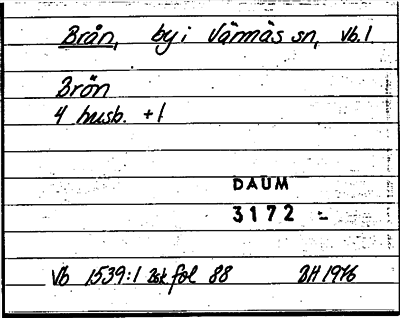 Brån, by i Vännäs sn, Vb.l.
Brön
4 husb. +1
DAUM
3172 -
Vb 1539:1 Bsk fol 88 BH 1976